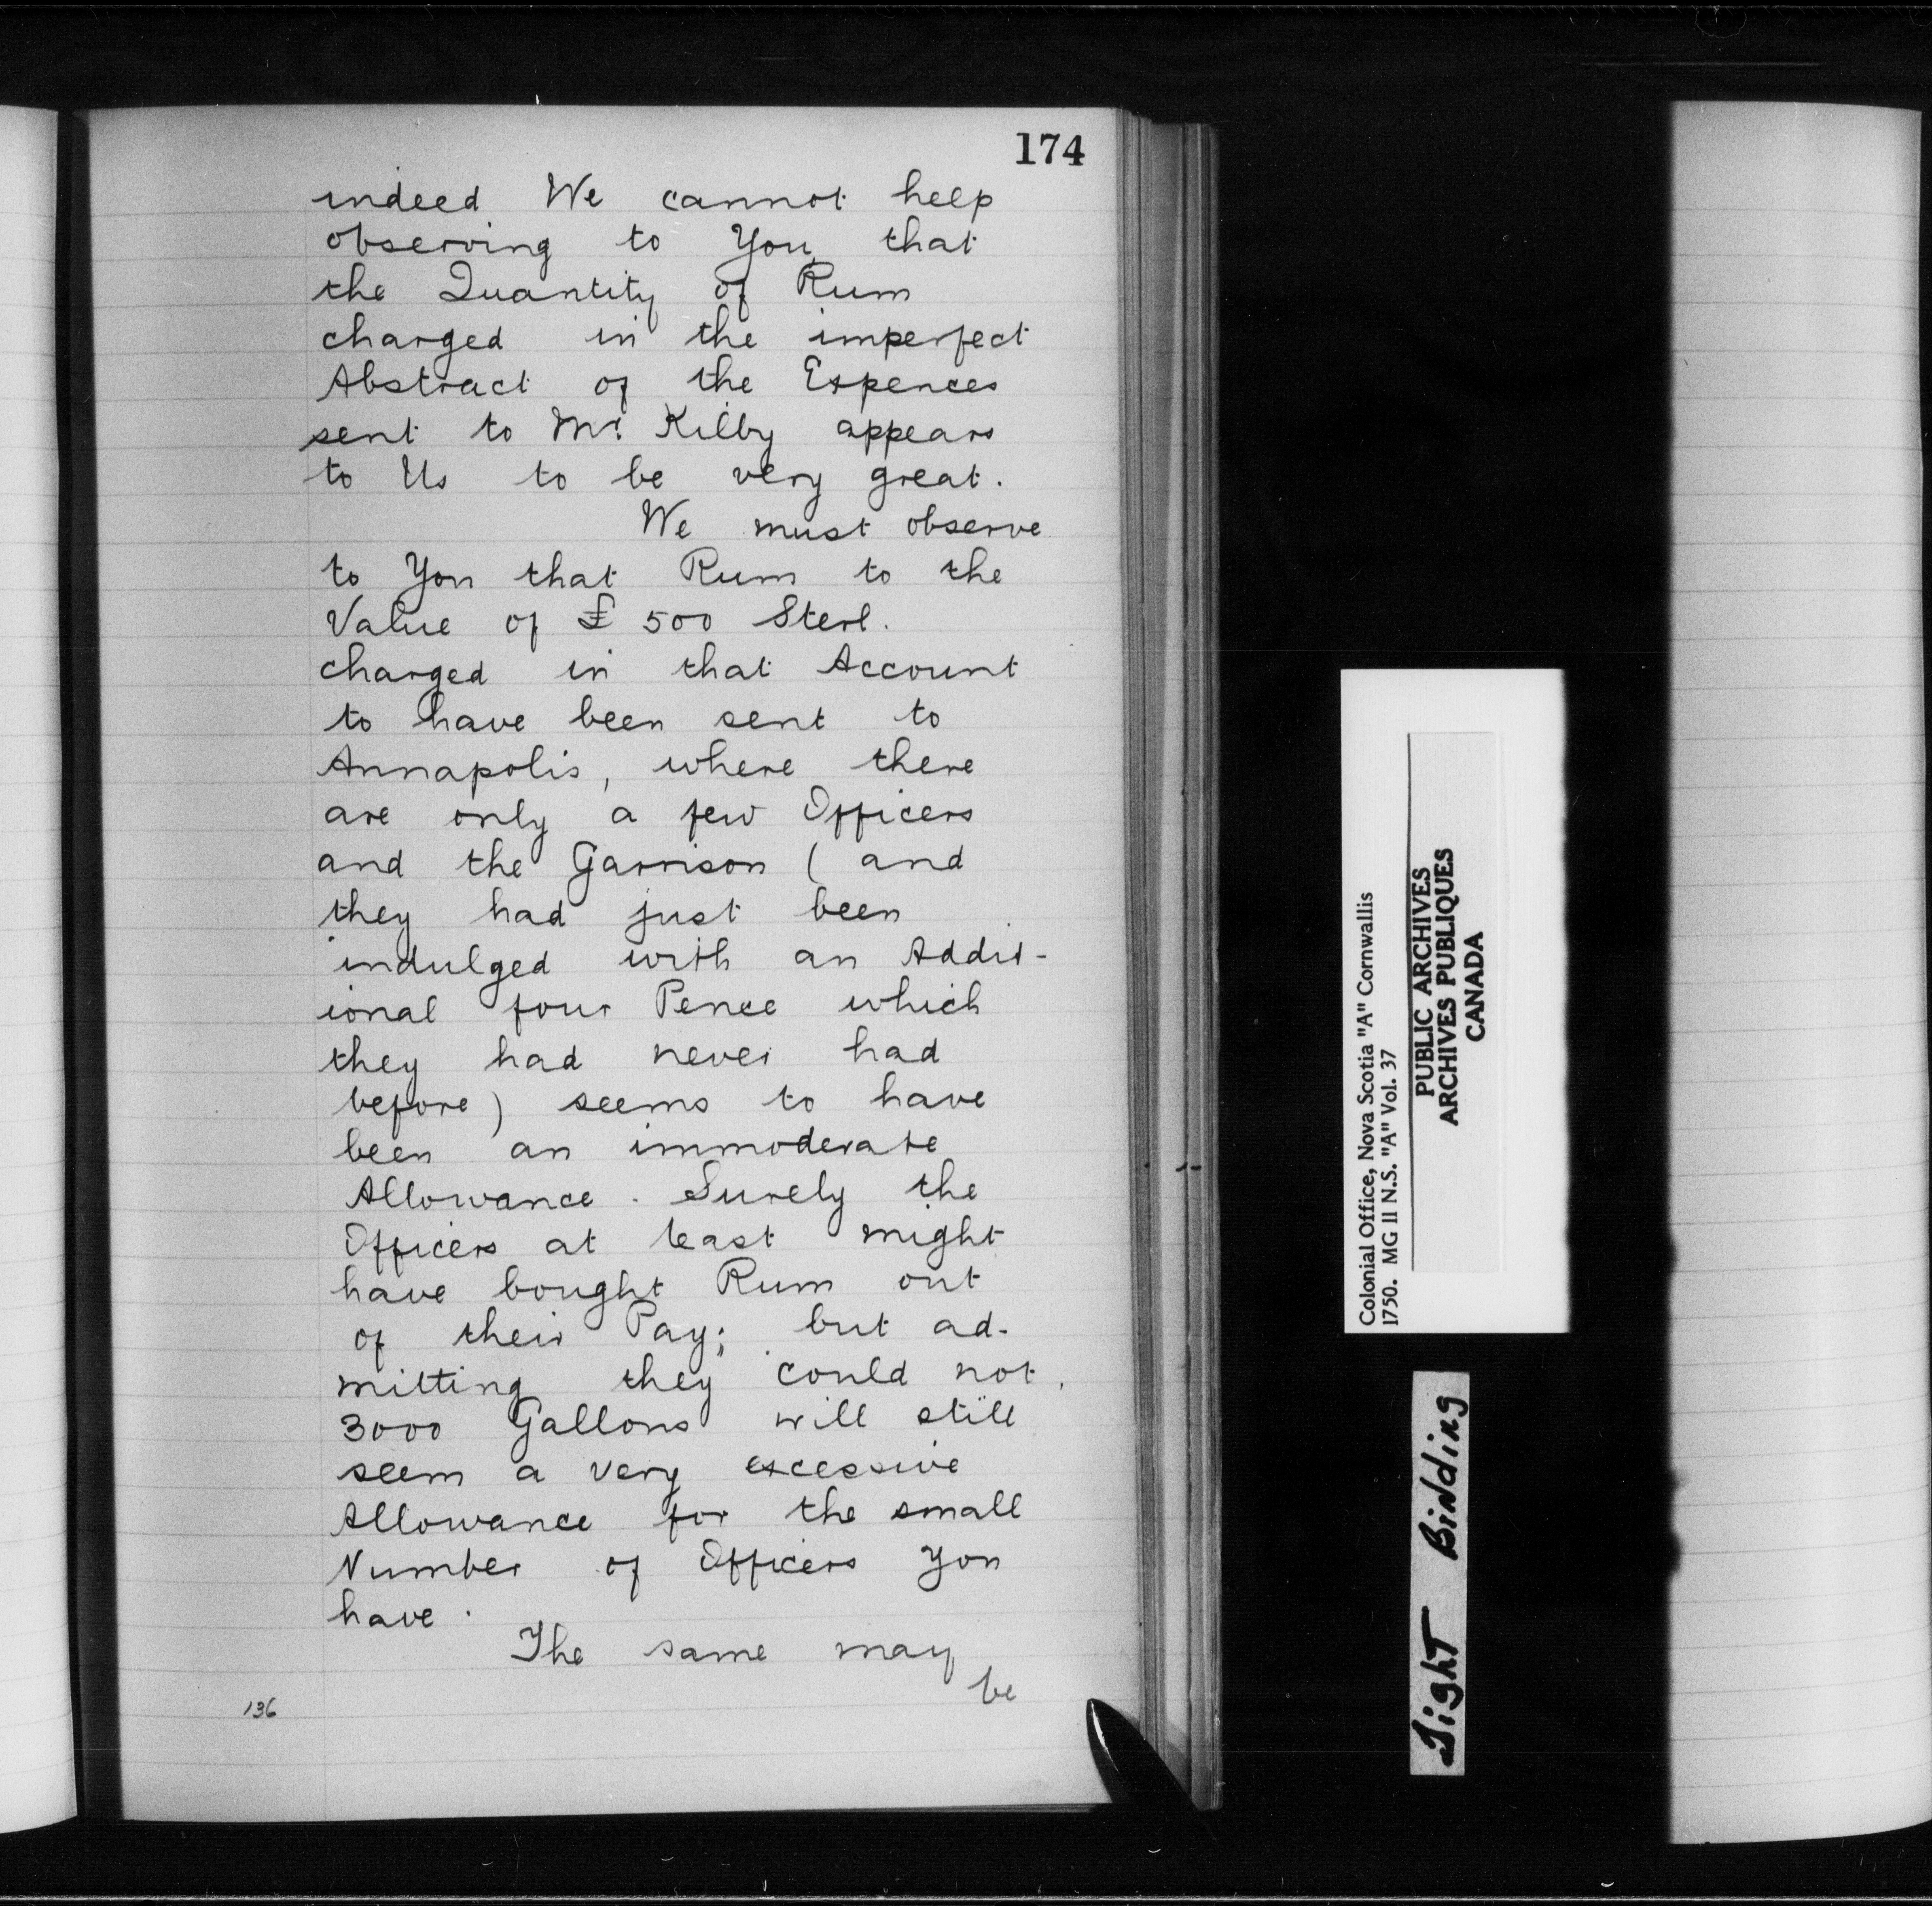 174
indeed We cannot help
observing to You, that
the Quantity of Rum
charged in the imperfect
Abstract of the Expences
sent to Mr. Kilby appears
to Us to be very great.
We must observe
to You that Rum to the
Value of £ 500 Sterl.
charged in that Account
to have been sent to
Annapolis, where there
are only a few Officers
and the Garrison ( and
they had just been
indulged with an Addit-
ional four Pence which
they had never had
before) seems to have
been an immoderate
Allowance. Surely the
Officers at least might
have bought Rum out
of their Pay; but ad-
mitting they could not,
3000 Gallons will still
seem a very excessive
Allowance for the small
Number of Officers You
have.
The same may
be
136
Colonial Office, Nova Scotia "A" Cornwallis
1750. MG 11 N.S. "A" Vol. 37
PUBLIC ARCHIVES
ARCHIVES PUBLIQUES
CANADA
Tight Binding